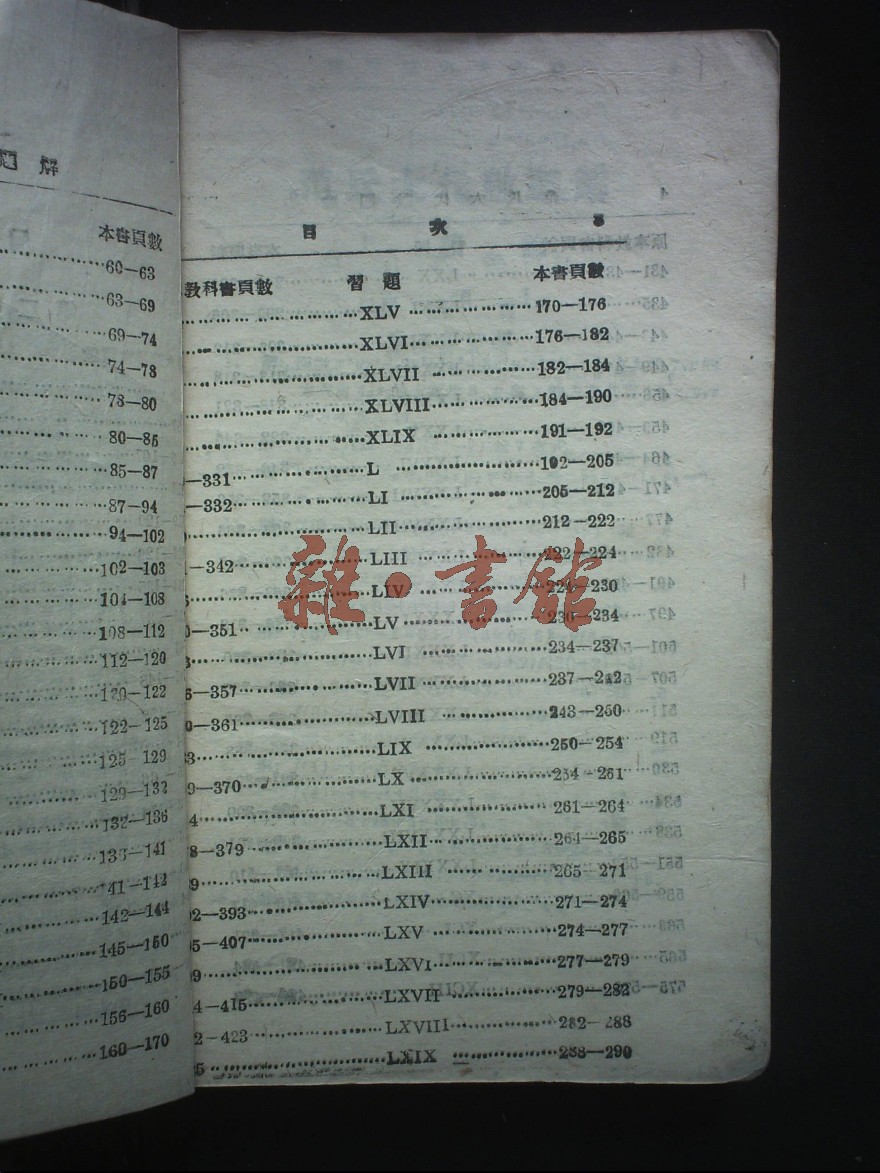 解
本書頁數
60—63
63—69
69—74
74—78
78—80
80—85
85—87
87—94
94—102
102—103
104—108
108—112
112—120
120—122
122—125
125—129
129—132
132—136
136—141
141—142
142—144
145—150
150—155
156—160
160—170
目 次 3
教科書頁數 習題 本書頁數
XLV 170—176
XLVI 176—182
XLVII 182—184
XLVIII 184—190
XLIX 191—192
—331 L 192—205
—332 LI 205—212
LII 212—222
—342 LIII 222—224
LIV 224—230
—351 LV 230—234
LVI 234—237
—357 LVII 237—242
—361 LVIII 243—250
LIX 250—254
—370 LX 254—261
LXI 261—264
—379 LXII 264—265
LXIII 265—271
—393 LXIV 271—274
—407 LXV 274—277
LXVI 277—279
—415 LXVII 279—282
—423 LXVIII 282—288
LXIX 288—290
雜·書館